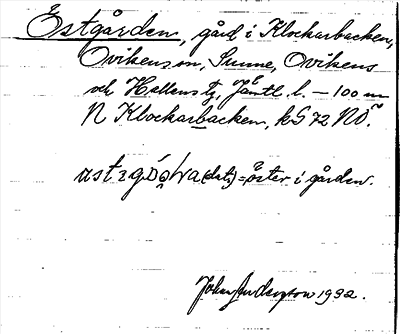 Östgården, gård i Klockarbacken,
Ovikens sn, Sunne, Ovikens
och Hallens tg, Jämtl. l. — 100 m
N Klockarbacken, k S 72 NÖ.
(dat) = öster i gården.
John Anderson 1932.